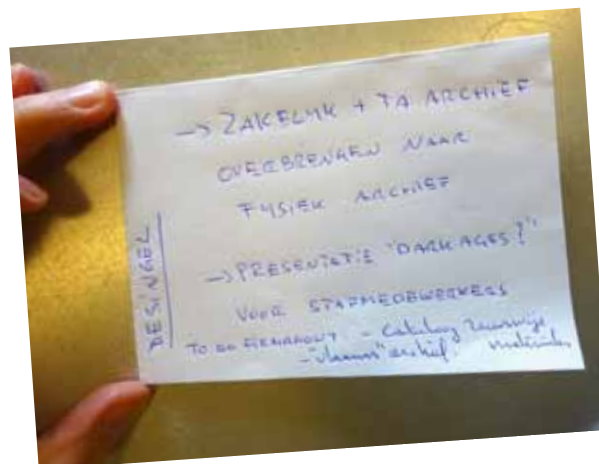 DESINGEL
→ ZAKELIJK + TA ARCHIEF
OVERBRENGEN NAAR
FYSIEK ARCHIEF
→ PRESENTATIE "DARK AGES?"
VOOR STAFMEDEWERKERS
TO DO - Catalog
- "Vlaams" archief.